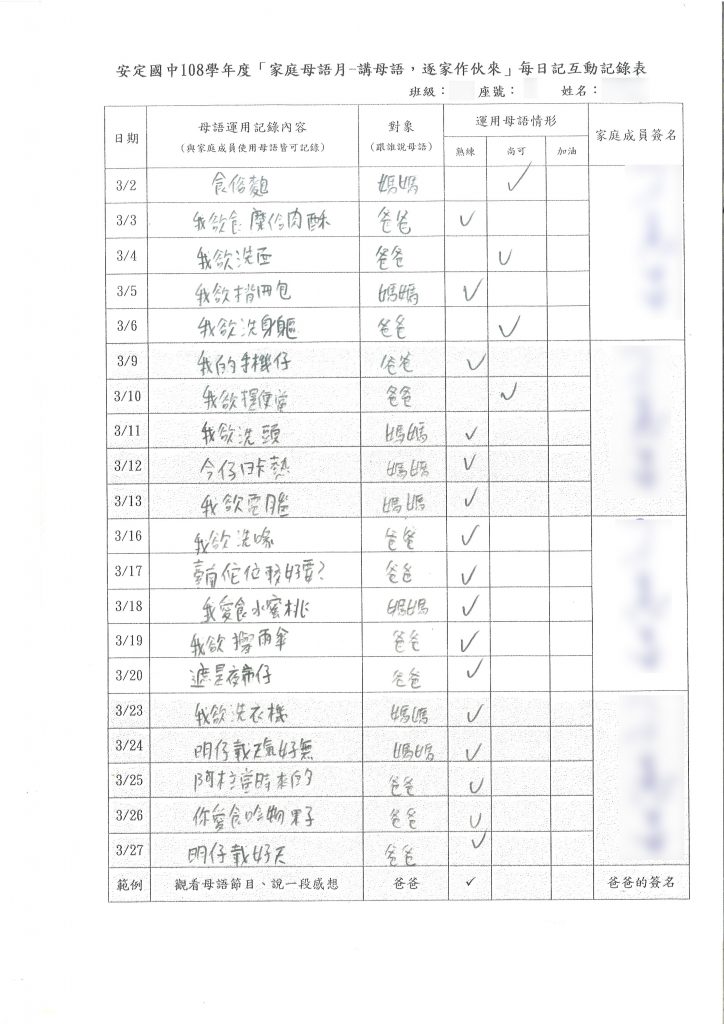 安定國中108學年度「家庭母語月-講母語，逐家作伙來」每日記互動記錄表
班級： 座號： 姓名：
日期 母語運用記錄內容 (與家庭成員使用母語皆可記錄) 對象 (跟誰說母語) 運用母語情形 熟練 尚可 加油 家庭成員簽名
3/2 食俗麭 媽媽 ✓
3/3 我欲食 肉酥 爸爸 ✓
3/4 我欲洗面 爸爸 ✓
3/5 我欲揹冊包 媽媽 ✓
3/6 我欲洗身軀 爸爸 ✓
3/9 我的手機仔 爸爸 ✓
3/10 我欲 便當 爸爸 ✓
3/11 我欲洗頭 媽媽 ✓
3/12 今仔日卡熱 媽媽 ✓
3/13 我欲電腦 媽媽 ✓
3/16 我欲洗喙 爸爸 ✓
3/17 佗位 好耍? 爸爸 ✓
3/18 我愛食水蜜桃 媽媽 ✓
3/19 我欲 雨傘 爸爸 ✓
3/20 遮是夜市仔 爸爸 ✓
3/23 我欲洗衣機 媽媽 ✓
3/24 明仔載天氣好無 媽媽 ✓
3/25 阿 當時來的 爸爸 ✓
3/26 你愛食 物果子 爸爸 ✓
3/27 明仔載好天 爸爸 ✓
範例 觀看母語節目、說一段感想 爸爸 ✓ 爸爸的簽名